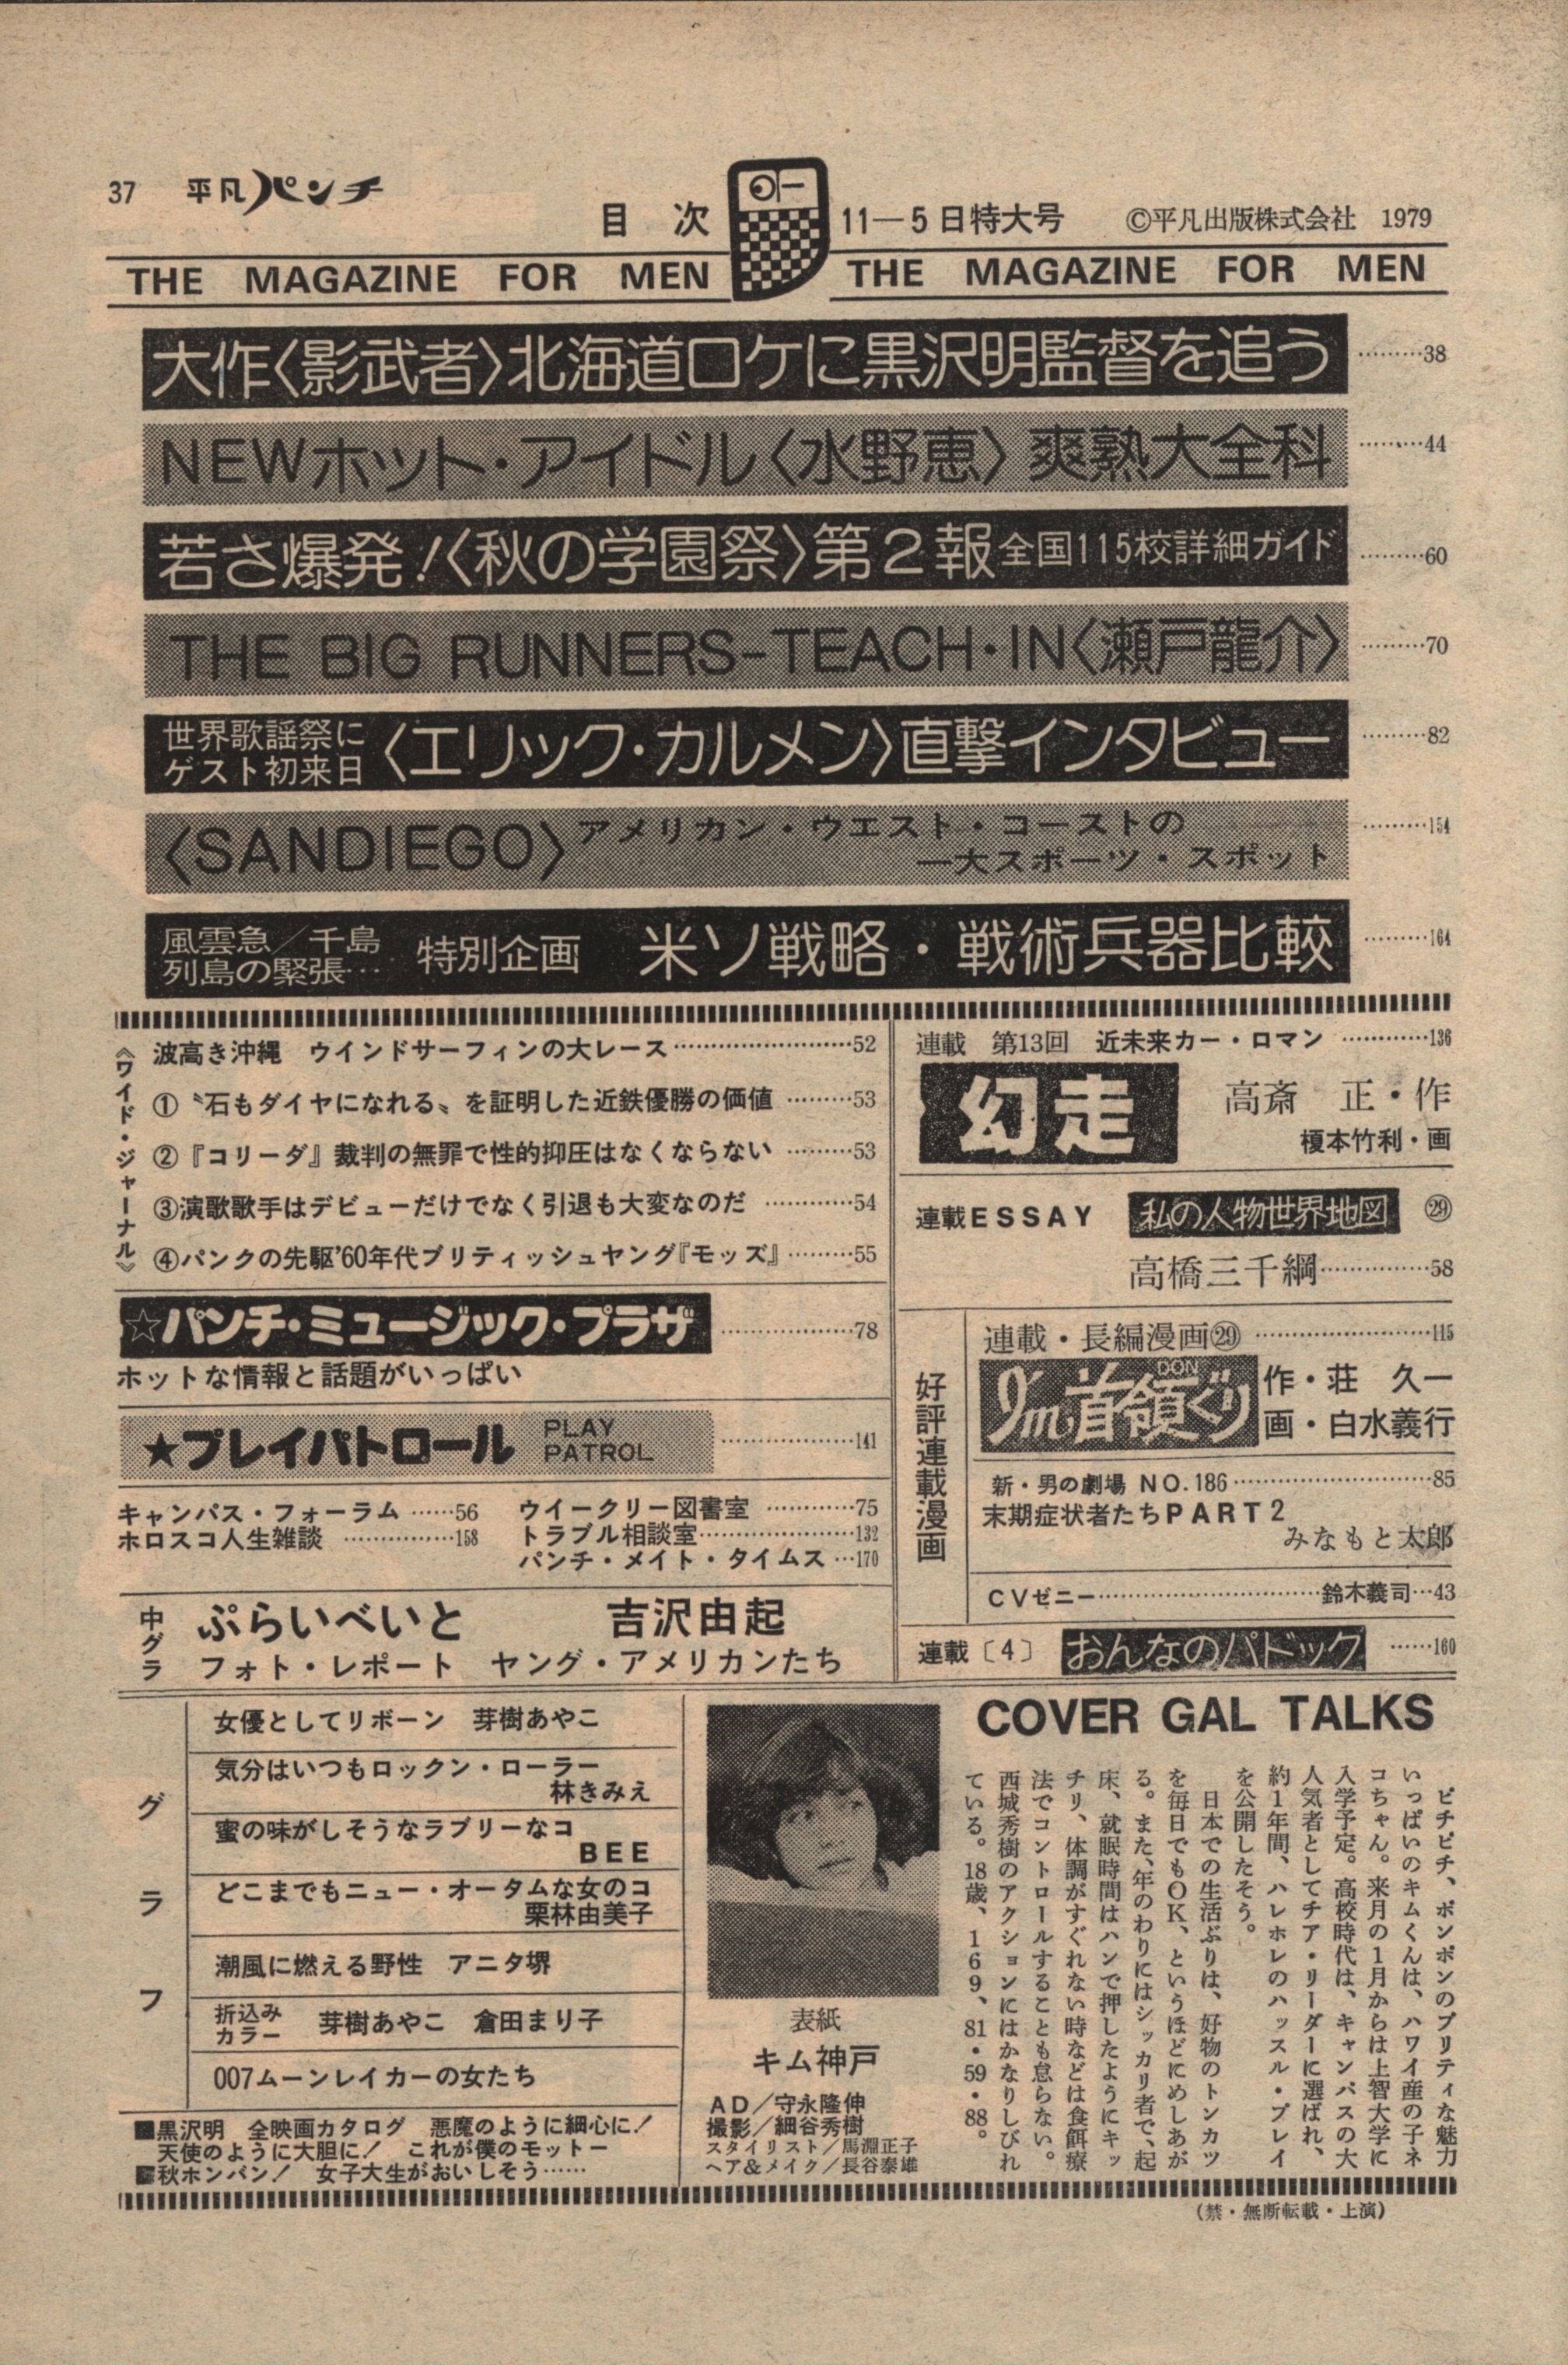 37 平凡パンチ
目次
11―5日特大号 ©平凡出版株式会社 1979
THE MAGAZINE FOR MEN
THE MAGAZINE FOR MEN
大作〈影武者〉北海道ロケに黒沢明監督を追う………38
NEWホット・アイドル〈水野恵〉爽熟大全科………44
若さ爆発!〈秋の学園祭〉第2報全国115校詳細ガイド………60
THE BIG RUNNERS−TEACH・IN〈瀬戸龍介〉………70
世界歌謡祭に
ゲスト初来日
〈エリック・カルメン〉直撃インタビュー………82
〈SANDIEGO〉
アメリカン・ウエスト・コーストの
一大スポーツ・スポット………154
風雲急/千島
列島の緊張…
特別企画 米ソ戦略・戦術兵器比較………164
《ワイド・ジャーナル》
波高き沖縄 ウインドサーフィンの大レース…………………52
①〝石もダイヤになれる〟を証明した近鉄優勝の価値………53
②『コリーダ』裁判の無罪で性的抑圧はなくならない………53
③演歌歌手はデビューだけでなく引退も大変なのだ…………54
④パンクの先駆'60年代ブリティッシュヤング『モッズ』………55
☆パンチ・ミュージック・プラザ………………78
ホットな情報と話題がいっぱい
★プレイパトロール PLAY
PATROL………………141
キャンパス・フォーラム……56
ホロスコ人生雑談……………158
ウイークリー図書室…………75
トラブル相談室…………………132
パンチ・メイト・タイムス…170
中グラ
ぷらいべいと 吉沢由起
フォト・レポート ヤング・アメリカンたち
連載 第13回 近未来カー・ロマン…………136
幻走
高斎 正・作
榎本竹利・画
連載ESSAY 私の人物世界地図 ㉙
高橋三千綱……………58
好評連載漫画
連載・長編漫画㉙……………………115
I'm首領ぐり
DON
作・荘 久一
画・白水義行
新・男の劇場 NO.186………………………85
末期症状者たちPART2
みなもと太郎
CVゼニー…………………………鈴木義司…43
連載〔4〕 おんなのパドック……160
グラフ
女優としてリボーン 芽樹あやこ
気分はいつもロックン・ローラー
林きみえ
蜜の味がしそうなラブリーなコ
BEE
どこまでもニュー・オータムな女のコ
栗林由美子
潮風に燃える野性 アニタ堺
折込み
カラー
芽樹あやこ 倉田まり子
007ムーンレイカーの女たち
■黒沢明 全映画カタログ 悪魔のように細心に!
天使のように大胆に! これが僕のモットー
■秋ホンバン! 女子大生がおいしそう……
表紙
キム神戸
AD/守永隆伸
撮影/細谷秀樹
スタイリスト/馬淵正子
ヘア&メイク/長谷泰雄
COVER GAL TALKS
ピチピチ、ボンボンのプリティな魅力
いっぱいのキムくんは、ハワイ産の子ネ
コちゃん。来月の1月からは上智大学に
入学予定。高校時代は、キャンパスの大
人気者としてチア・リーダーに選ばれ、
約1年間、ハレホレのハッスル・プレイ
を公開したそう。
日本での生活ぶりは、好物のトンカツ
を毎日でもOK、というほどにめしあが
る。また、年のわりにはシッカリ者で、起
床、就眠時間はハンで押したようにキッ
チリ、体調がすぐれない時などは食餌療
法でコントロールすることも怠らない。
西城秀樹のアクションにはかなりしびれ
ている。18歳、169、81・59・88。
(禁・無断転載・上演)